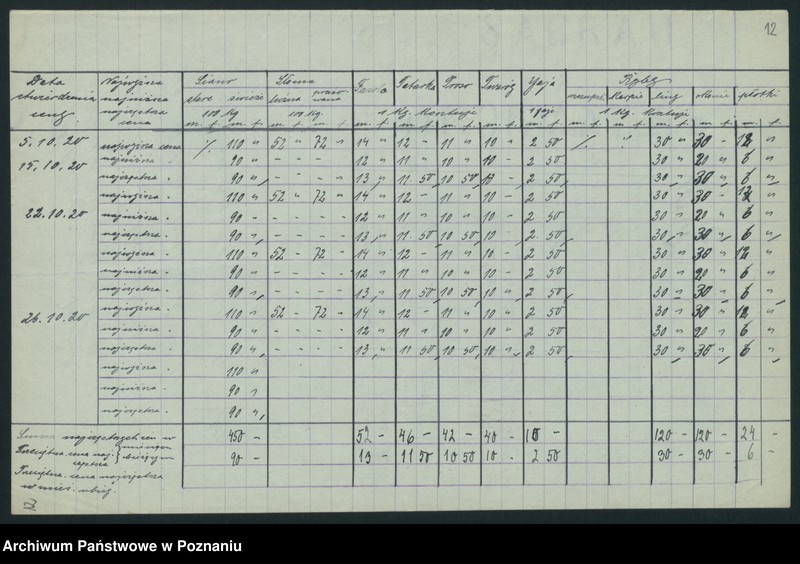 12
Data stwierdzenia ceny
Najwyższa najniższa najczęstsza cena
Siano Słoma Fasola Tatarka Proso Jaja Ryby
stare świeże luźna prasowana szczupak Karpie liny płotki
100 Kg. 100 Kg. 1 Kg. kosztuje 1 Kg. kosztuje
m. f. m. f. m. f. m. f. m. f. m. f. m. f. m. f. m. f. m. f. m. f. m. f. m. f. m. f.
5.10.20 najwyższa cena ⁒ 110 " 52 " 72 " 14 " 12 - 11 " 10 " 2 50 ⁒ " 30 " 30 - 12 "
15.10.20 najniższa " 90 " - - - - 12 " 11 " 10 " 10 - 2 50 30 " 20 " 6 "
najczęstsza " 90 " - - - - 13 " 11 50 10 50 10 - 2 50 30 " 30 " 6 "
najwyższa " 110 " 52 " 72 " 14 " 12 - 11 " 10 - 2 50 30 " 30 - 12 "
22.10.20 najniższa " 90 - - - - - 12 " 11 " 10 " 10 - 2 50 30 " 20 " 6 "
najczęstsza " 90 " - - - - 13 " 11 50 10 50 10 - 2 50 30 " 30 " 6 "
najwyższa " 110 " 52 - 72 - 14 " 12 - 11 " 10 - 2 50 30 " 30 " 12 "
najniższa " 90 " - - - - 12 " 11 " 10 " 10 - 2 50 30 " 20 " 6 "
najczęstsza " 90 " - - - - 13 " 11 50 10 50 10 " 2 50 30 " 30 " 6 "
26.10.20 najwyższa " 110 " 52 - 72 " 14 " 12 - 11 " 10 " 2 50 30 " 30 " 12 "
najniższa " 90 " - - - - 12 " 11 " 10 " 10 " 2 50 30 " 20 " 6 "
najczęstsza " 90 " - - - - 13 " 11 50 10 50 10 " 2 50 30 " 30 " 6 "
najwyższa " 110 "
najniższa " 90 "
najczęstsza " 90 "
Suma najczęstszych cen w 450 - 52 - 46 - 42 - 40 - 10 120 - 120 - 24 -
Przeciętna cena naj- 90 - 13 - 11 50 10 50 10 - 2 50 30 - 30 - 6 -
Przeciętna cena najczęstsza
w mies. ubieg.
Archiwum Państwowe w Poznaniu